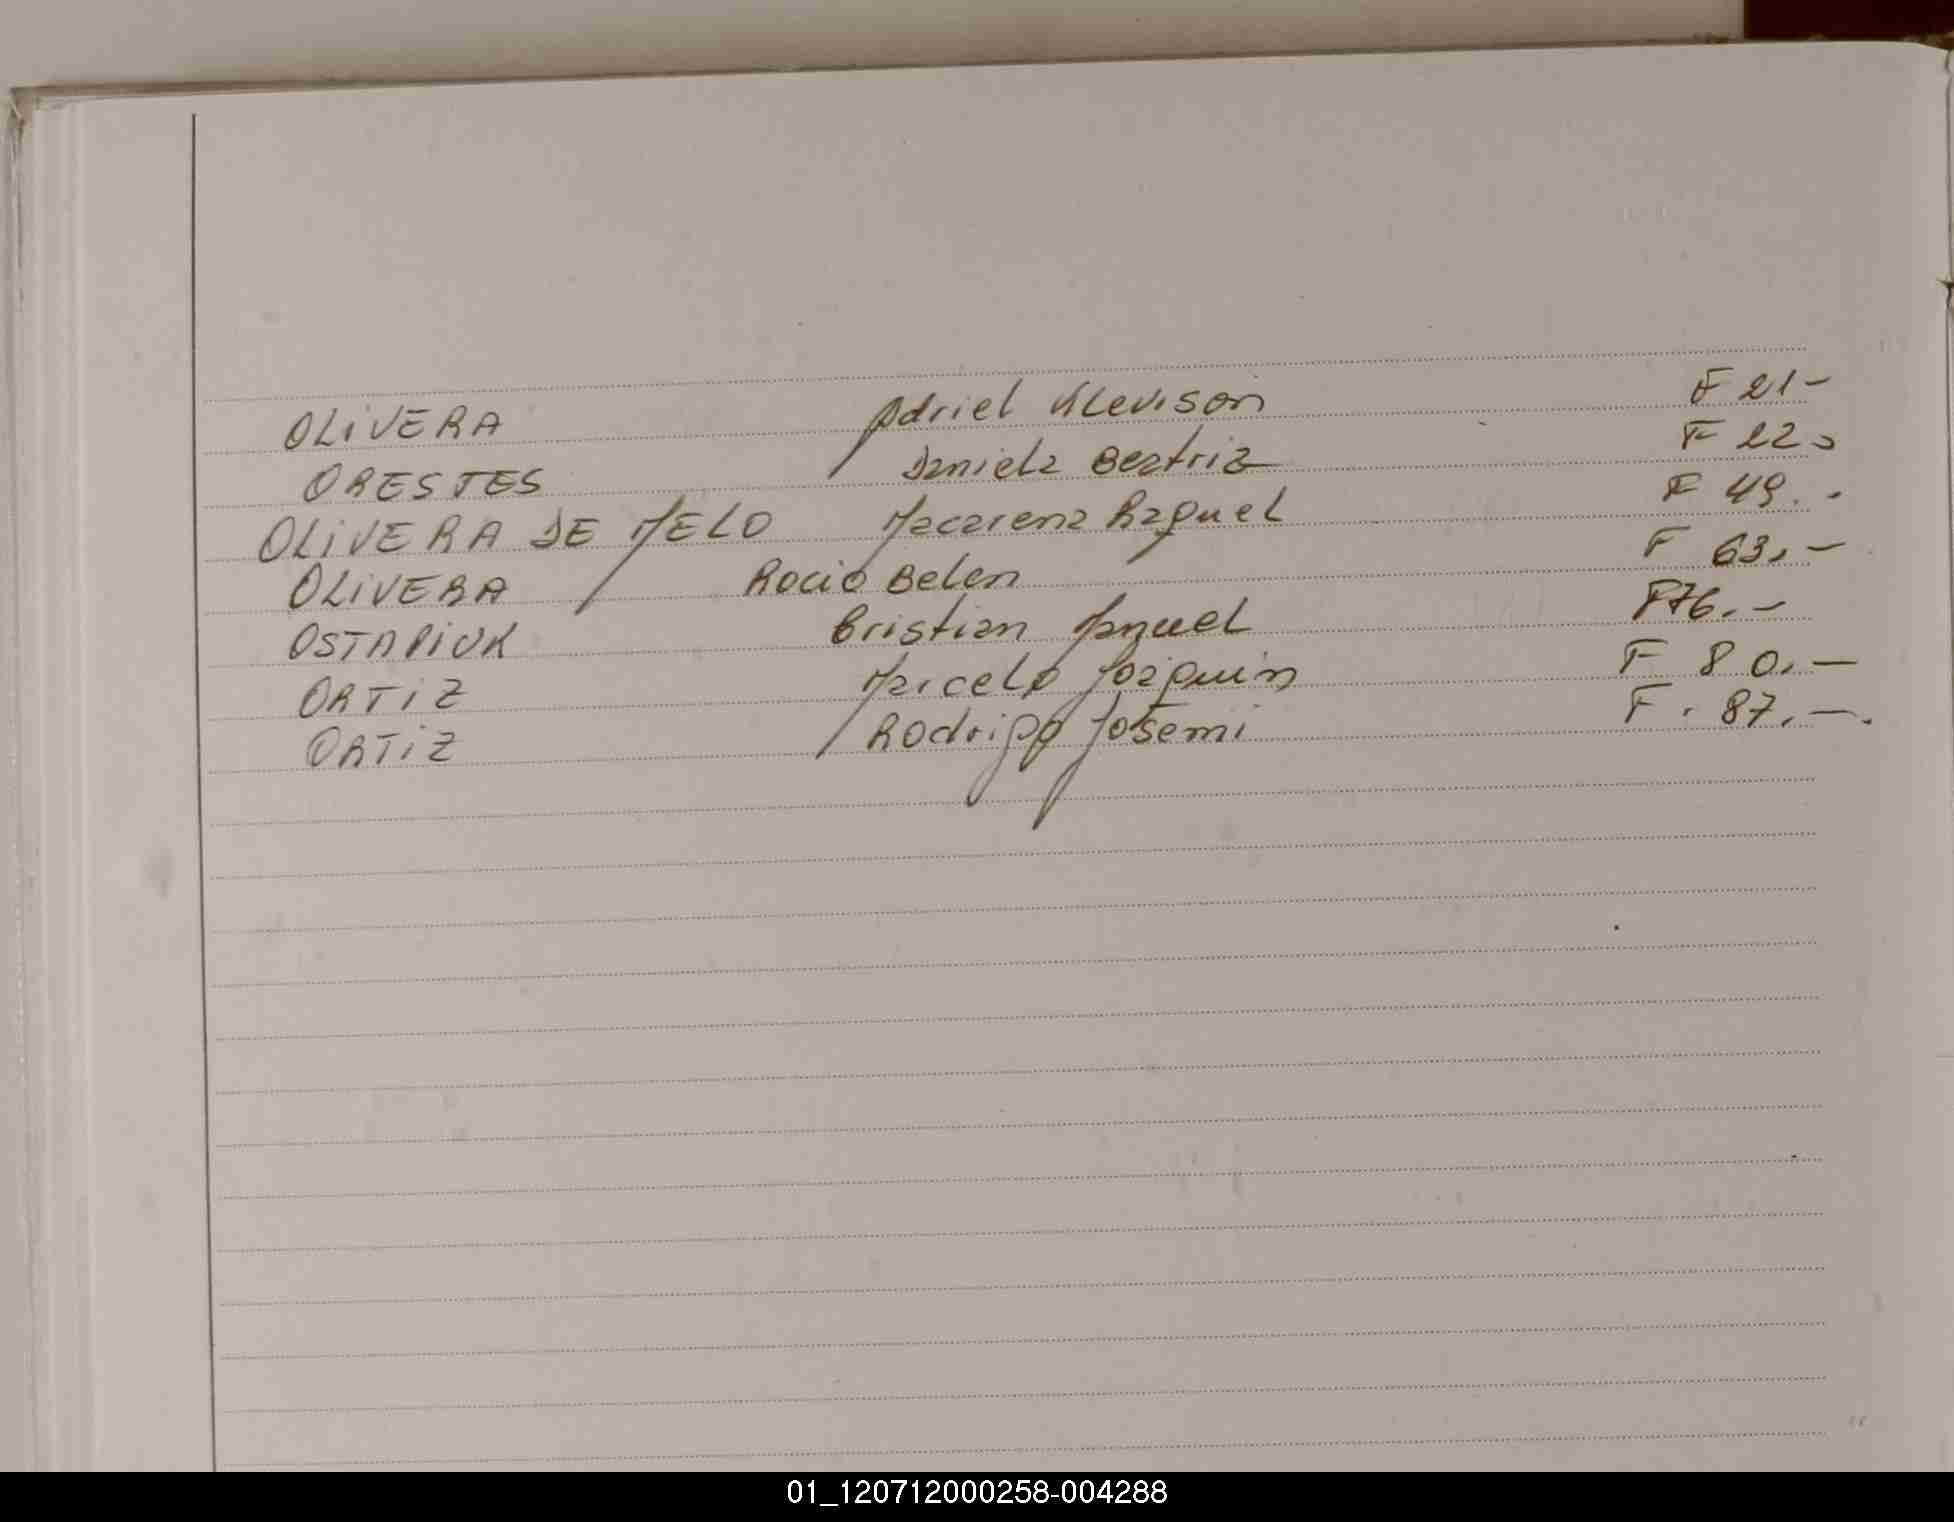 OLIVERA Adriel Klevison F 21-
ORESTES Daniela Beatriz F 22-
OLIVERA DE MELO Macarena Raquel F 49.-
OLIVERA Rocio Belen F 63.-
OSTAPIUK Cristian Manuel F76.-
ORTIZ Marcelo Joaquin F 80.-
ORTIZ Rodrigo Josemi F. 87.-.
01_120712000258-004288